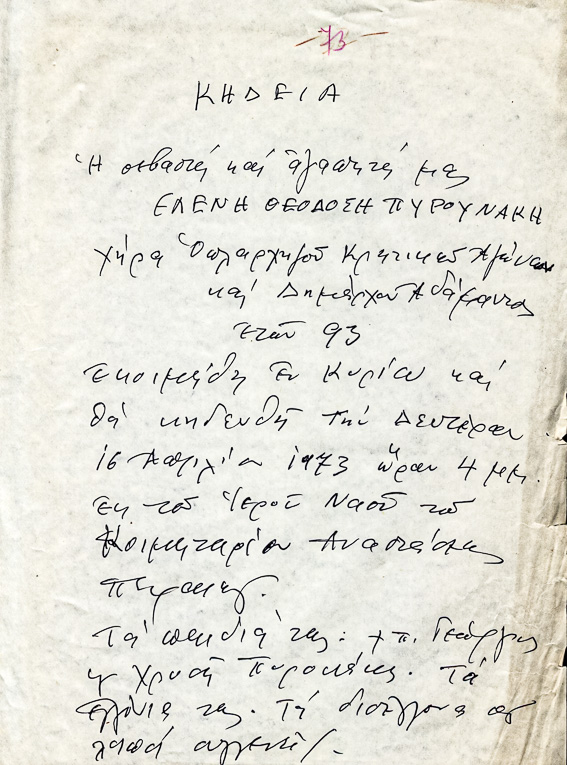 73
ΚΗΔΕΙΑ
Ἡ σεβαστή καί ἀγαπητή μας
ΕΛΕΝΗ ΘΕΟΔΟΣΗ ΠΥΡΟΥΝΑΚΗ
χήρα Ὁπλαρχηγοῦ Κρητικοῦ Ἀγῶνος
καί Δημάρχου Ἀδάμαντος
ἐτῶν 93
ἐκοιμήθη ἐν Κυρίῳ καί
θά κηδευθῆ τήν Δευτέραν
16 Ἀπριλίου 1973 ὥραν 4 μμ.
ἐκ τοῦ Ἱεροῦ Ναοῦ τοῦ
Κοιμητηρίου Ἀναστάσεως
Πειραιῶς.
Τά παιδιά της: + π. Γεώργιος
Χρυσῆ Πυρουνάκης. Τά
ἐγγόνια της. Τά δισέγγονα
λοιποί συγγενεῖς.